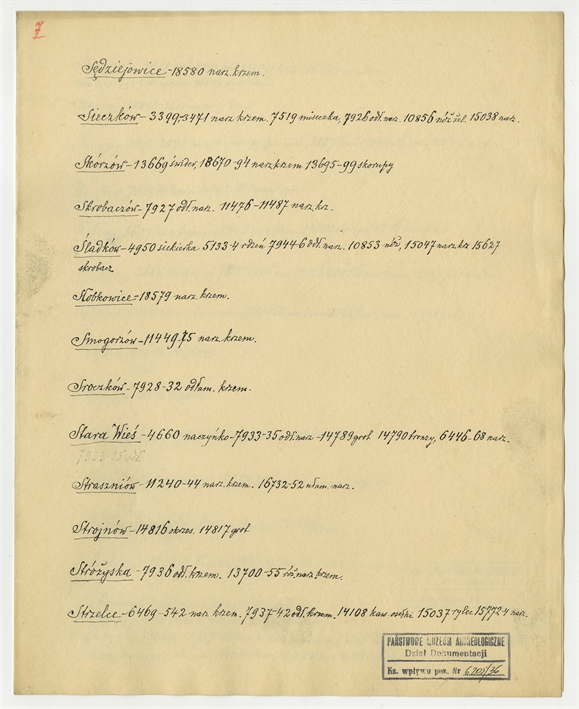 7
Sędziejowice - 18580 narz. krzem.
Sieczków - 3399, -3471 narz krzem. 7519 miseczka, 7926 odł. narz. 10856 nóż żel. 15038 narz.
Skórzów - 13669 świder, 18670-94 narz. krzem 13695-99 skorupy
Skrobaczów - 7927 odł. narz. 11476-11487 narz. krz.
Śladków - 4950 siekierka 5133-4 rdzeń 7944-6 odł. narz. 10853 nóż, 15047 narz. krz 15627
skrobacz
Słobkowice - 18579 narz. krzem.
Smogorzów - 11449-75 narz. krzem.
Sroczków - 7928-32 odłam. krzem.
Stara Wieś - 4660 naczyńko - 7933-35 odł. narz - 14789 grot 14790, 6446-68 narz.
7933-35 odł.
Straszniów - 11240-44 narz. krzem. 16732-52 ułam. narz.
Strojnów - 14816 okrzes. 14817 grot
Stróżyska - 7936 odł. krzem. 13700-55 róż. narz. krzem.
Strzelce - 6469-542 narz. krzem. 7937-42 odł. krzem. 14108 kaw. osełki 15037 rylec 15772-4 narz.
PAŃSTWOWE MUZEUM ARCHEOLOGICZNE
Dział Dokumentacji
Ks. wpływu poz. Nr